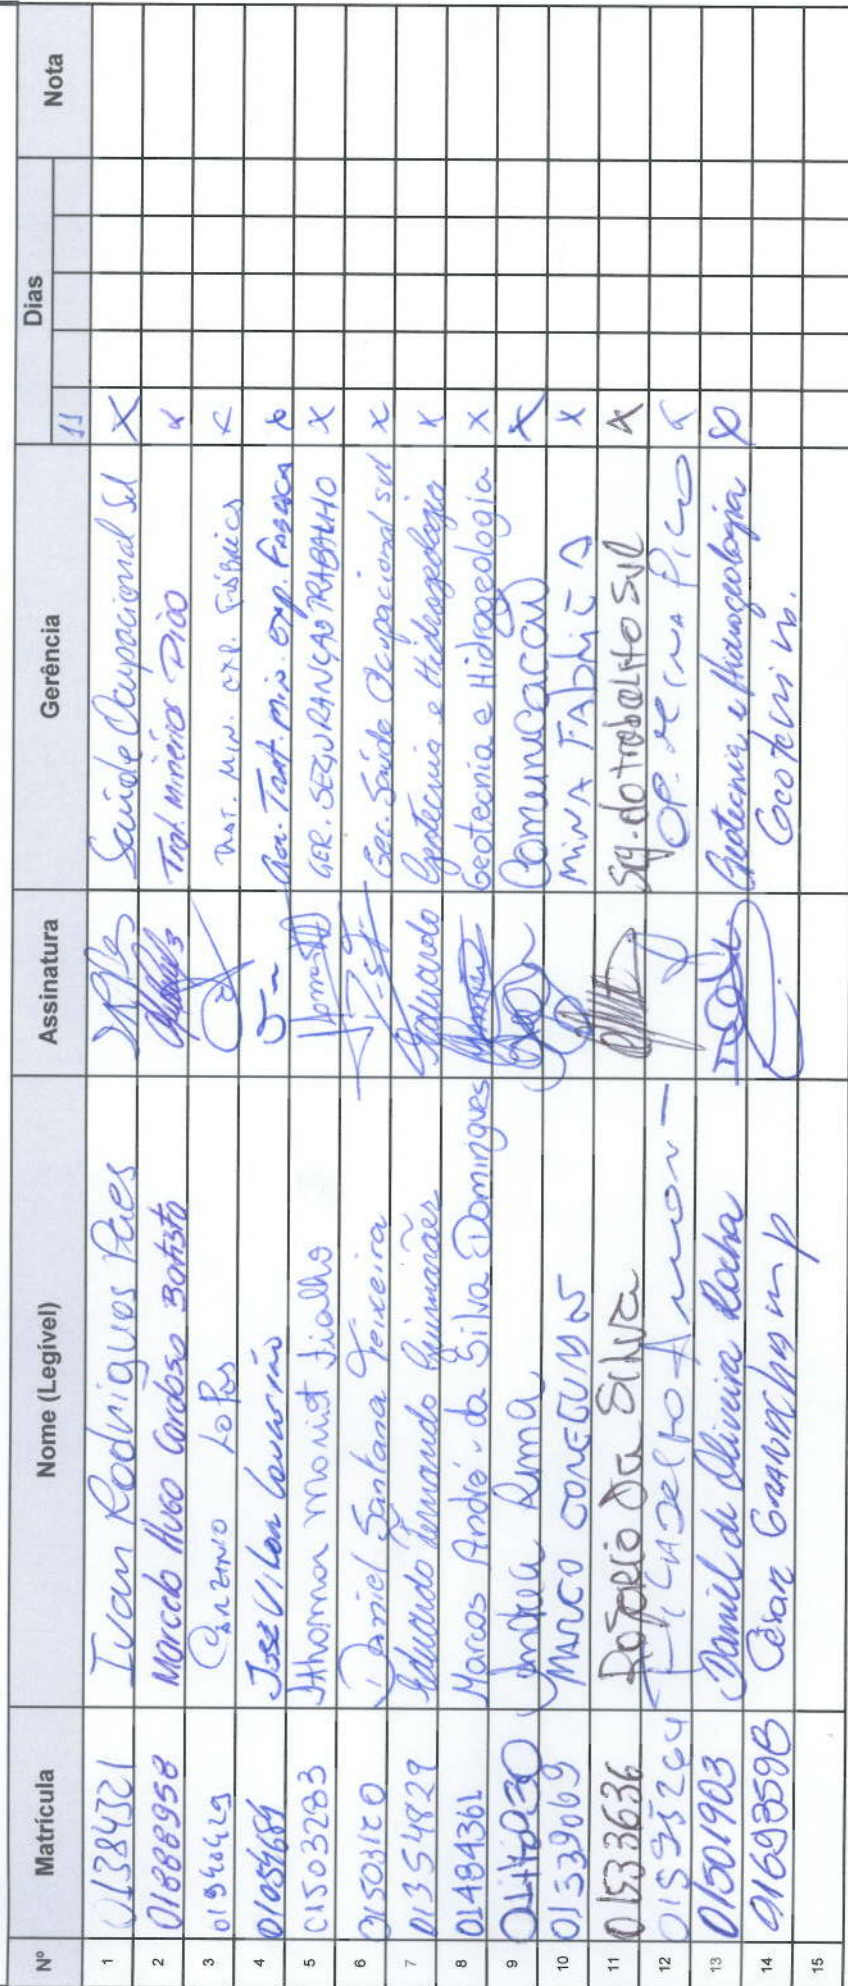 Nº Matrícula Nome (Legível) Assinatura Gerência Dias Nota
11
1 01384321 Ivan Rodrigues Paes Saúde Ocupacional Sul X
2 01888958 Marcelo Hugo Cardoso Batista Trat. Minérios Pico x
3 Lopes Trat. Min. Exp. Fábrica x
4 01054689 José Vilon Ger. Trat. Min. Exp. Fábrica x
5 01503283 Jthomna Monist Fialho GER. SEGURANÇA TRABALHO x
6 01503120 Daniel Santana Teixeira Ger. Saúde Ocupacional sul x
7 01354829 Eduardo Fernando Guimarães Eduardo Geotecnia e Hidrogeologia x
8 01484361 Marcos André da Silva Domingues Geotecnia e Hidrogeologia X
9 Andrea Lima Comunicacao X
10 01339069 MARCO MINA FABRICA X
11 01533636 Rogerio Da Silva Seg. do trabalho SUL X
12 01595264 OP. MINA PICO x
13 01501903 Daniel de Oliveira Rocha Geotecnia e Hidrogeologia X
14 01693598 Cesar Geotecnia
15